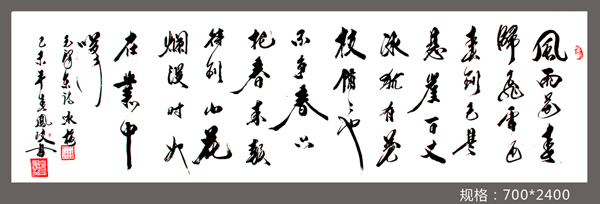 風雨送春
歸飛雪迎
春到已是
悬崖百丈
冰猶有花
枝俏〻也
不争春只
把春来報
待到山花
爛漫时她
在叢中
笑
毛澤东詞咏梅
乙未年
规格：700*2400